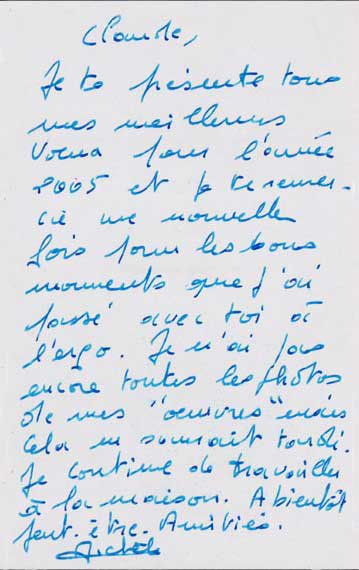 Claude,
Je te présente tous
mes meilleurs
voeux pour l'année
2005 et je te remer-
cie une nouvelle
fois pour les bons
moments que j'ai
passé avec toi à
l'ergo. Je n'ai pas
encore toutes les photos
de mes "oeuvres" mais
cela ne saurait tarder.
Je continue de travailler
à la maison. A bientôt
peut-être. Amitiés.
Michèle